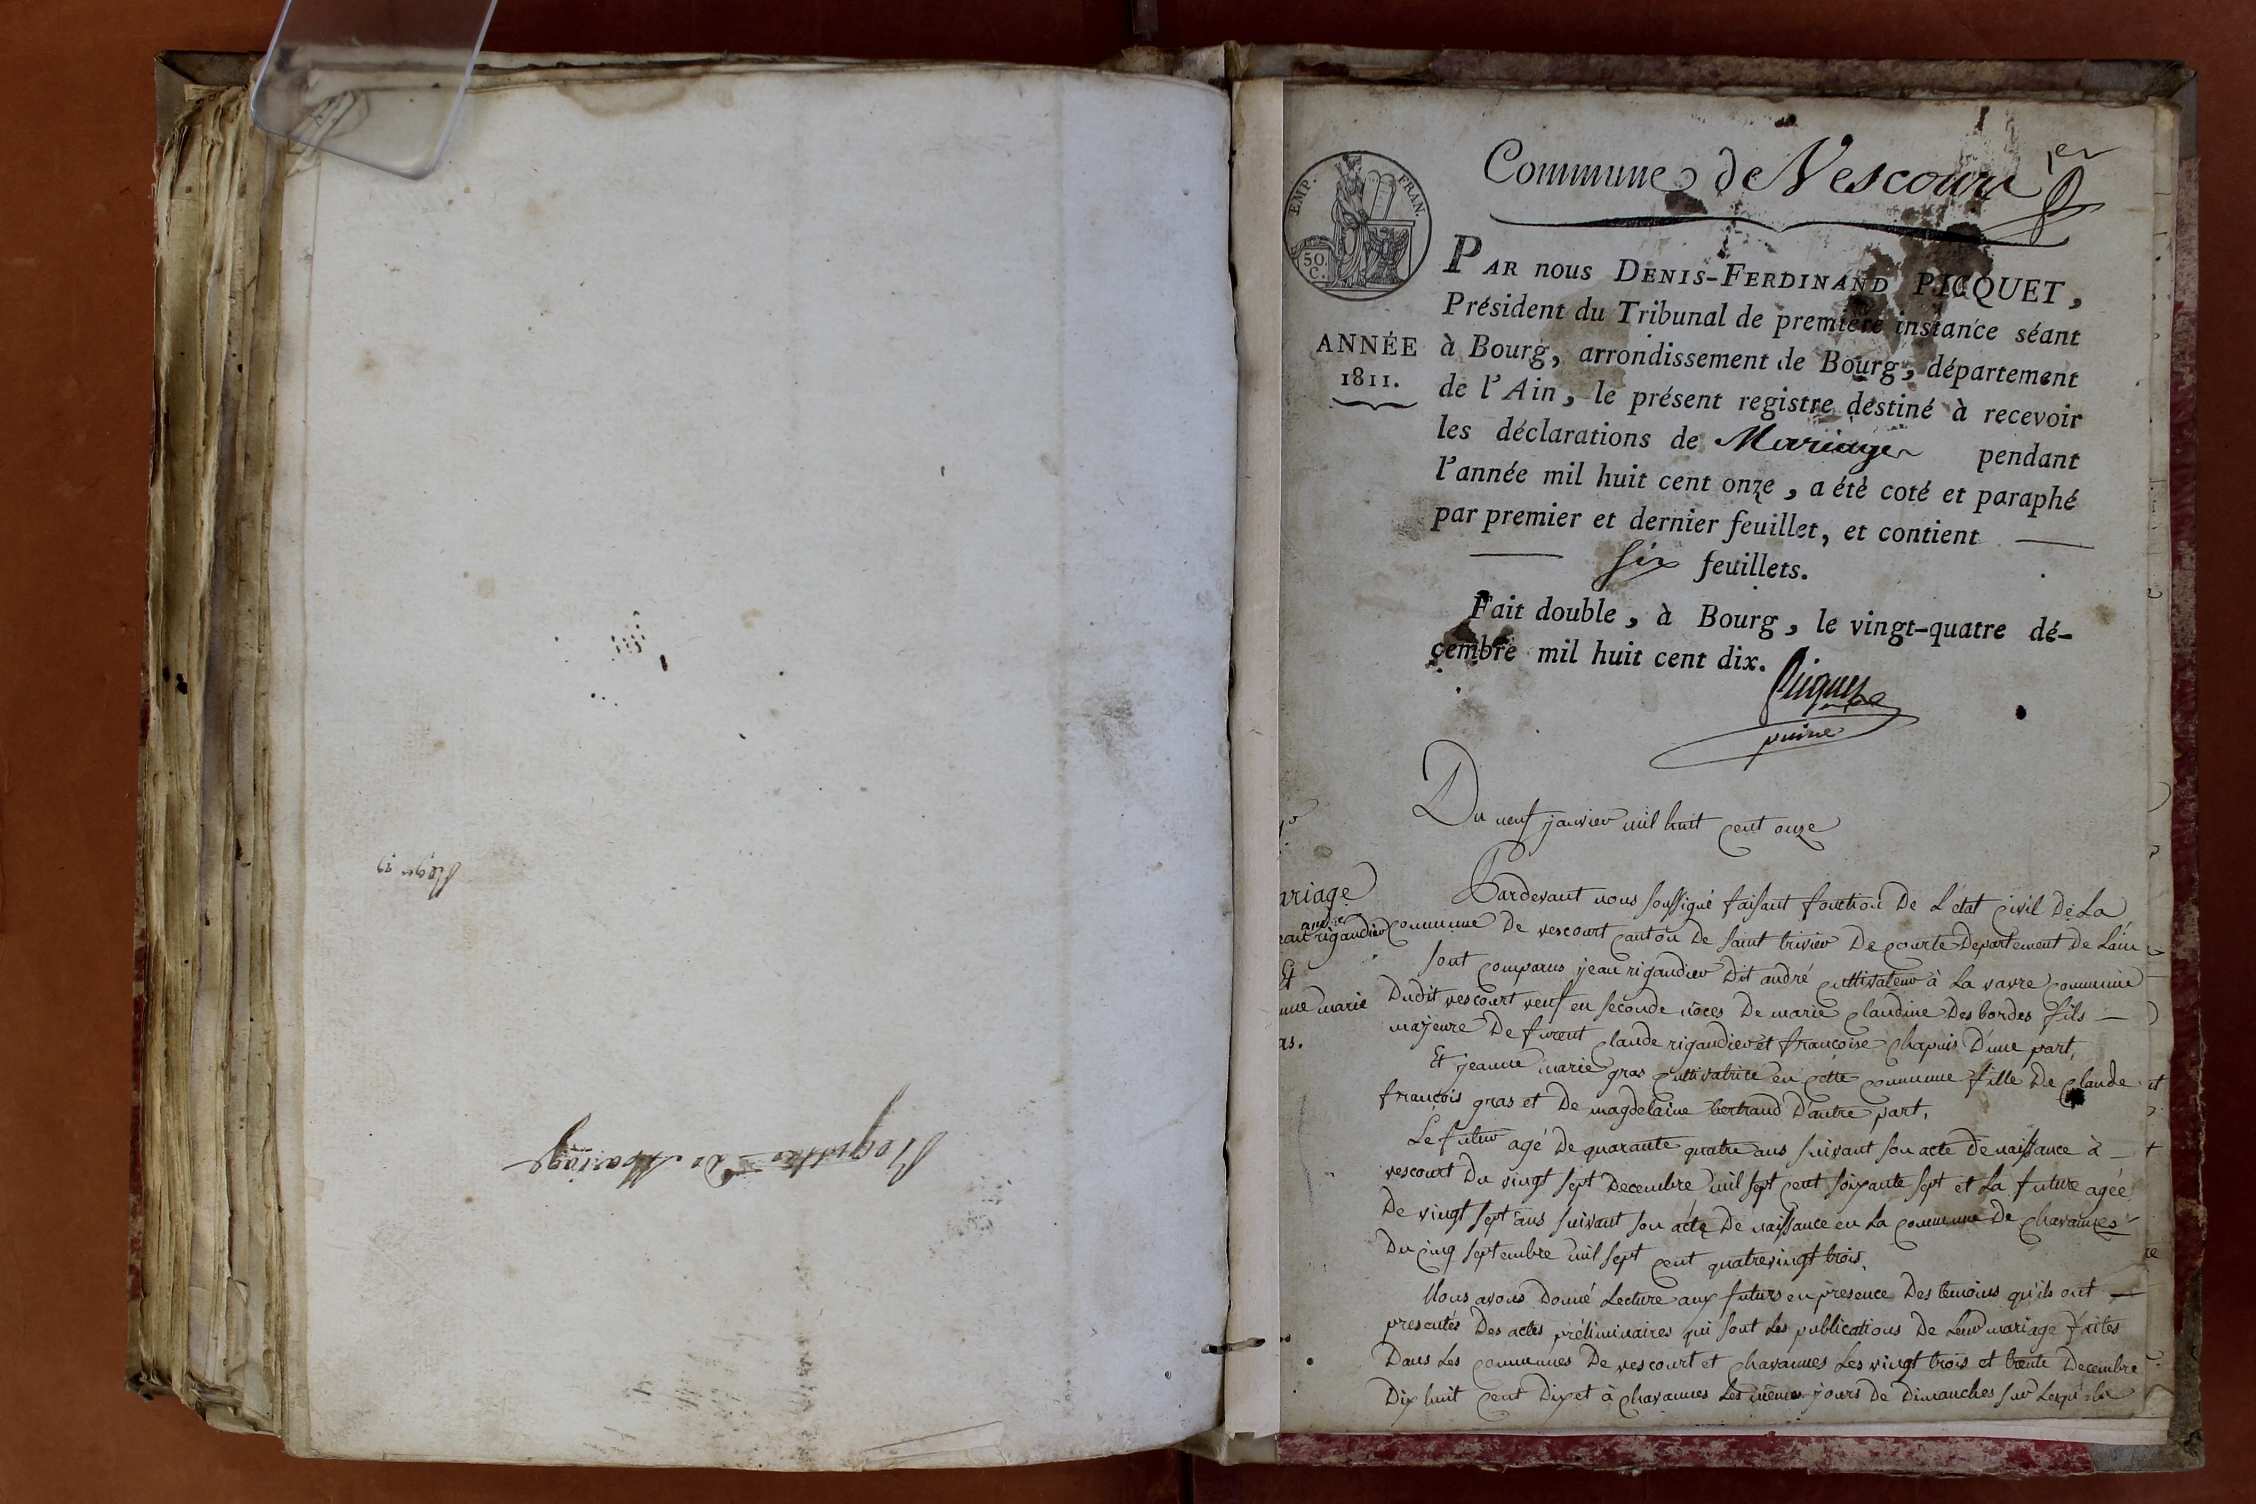 Registre de Mariage
Commune de Vescourt 1er
EMP. FRAN.
50 C.
ANNÉE
1811.
PAR nous DENIS-FERDINAND PICQUET,
Président du Tribunal de première instance séant
à Bourg, arrondissement de Bourg, département
de l'Ain, le présent registre destiné à recevoir
les déclarations de Mariages pendant
l'année mil huit cent onze, a été coté et paraphé
par premier et dernier feuillet, et contient
six feuillets.
Fait double, à Bourg, le vingt-quatre dé-
cembre mil huit cent dix.
Picquet
Du neuf janvier mil huit cent onze
ariage
andre
ean rigaudier
Et
nne marie
as.
Pardevant nous soussigné faisant fonction De L'état Civil De La
commune De vescourt canton De saint trivier De courte Departement de Lain
sont comparus jean rigaudier Dit andré cultivateur à La varre commune
Dudit vescourt veuf en seconde noces De marie claudine Desbordes fils
majeure De furent claude rigaudier et françoise chapuis D'une part,
Et jeanne marie gras cultivatrice en cette commune fille De claude
françois gras et De magdelaine bertrand D'autre part,
Le futur agé De quarante quatre ans suivant son acte De naissance à
vescourt Du vingt sept Decembre mil sept cent soixante sept et La future agée
De vingt sept ans suivant son acte De naissance en La commune De chavannes
Du cinq septembre mil sept cent quatrevingt trois,
Nous avons Donné Lecture aux futurs en presence Des temoins qu'ils ont
presentés Des actes préliminaires qui sont Les publications De Leur mariage faites
Dans Les communes De vescourt et chavannes Les vingt trois et trente Decembre
Dix huit cent Dix et à chavannes Les mêmes jours De Dimanches sur Lesquels